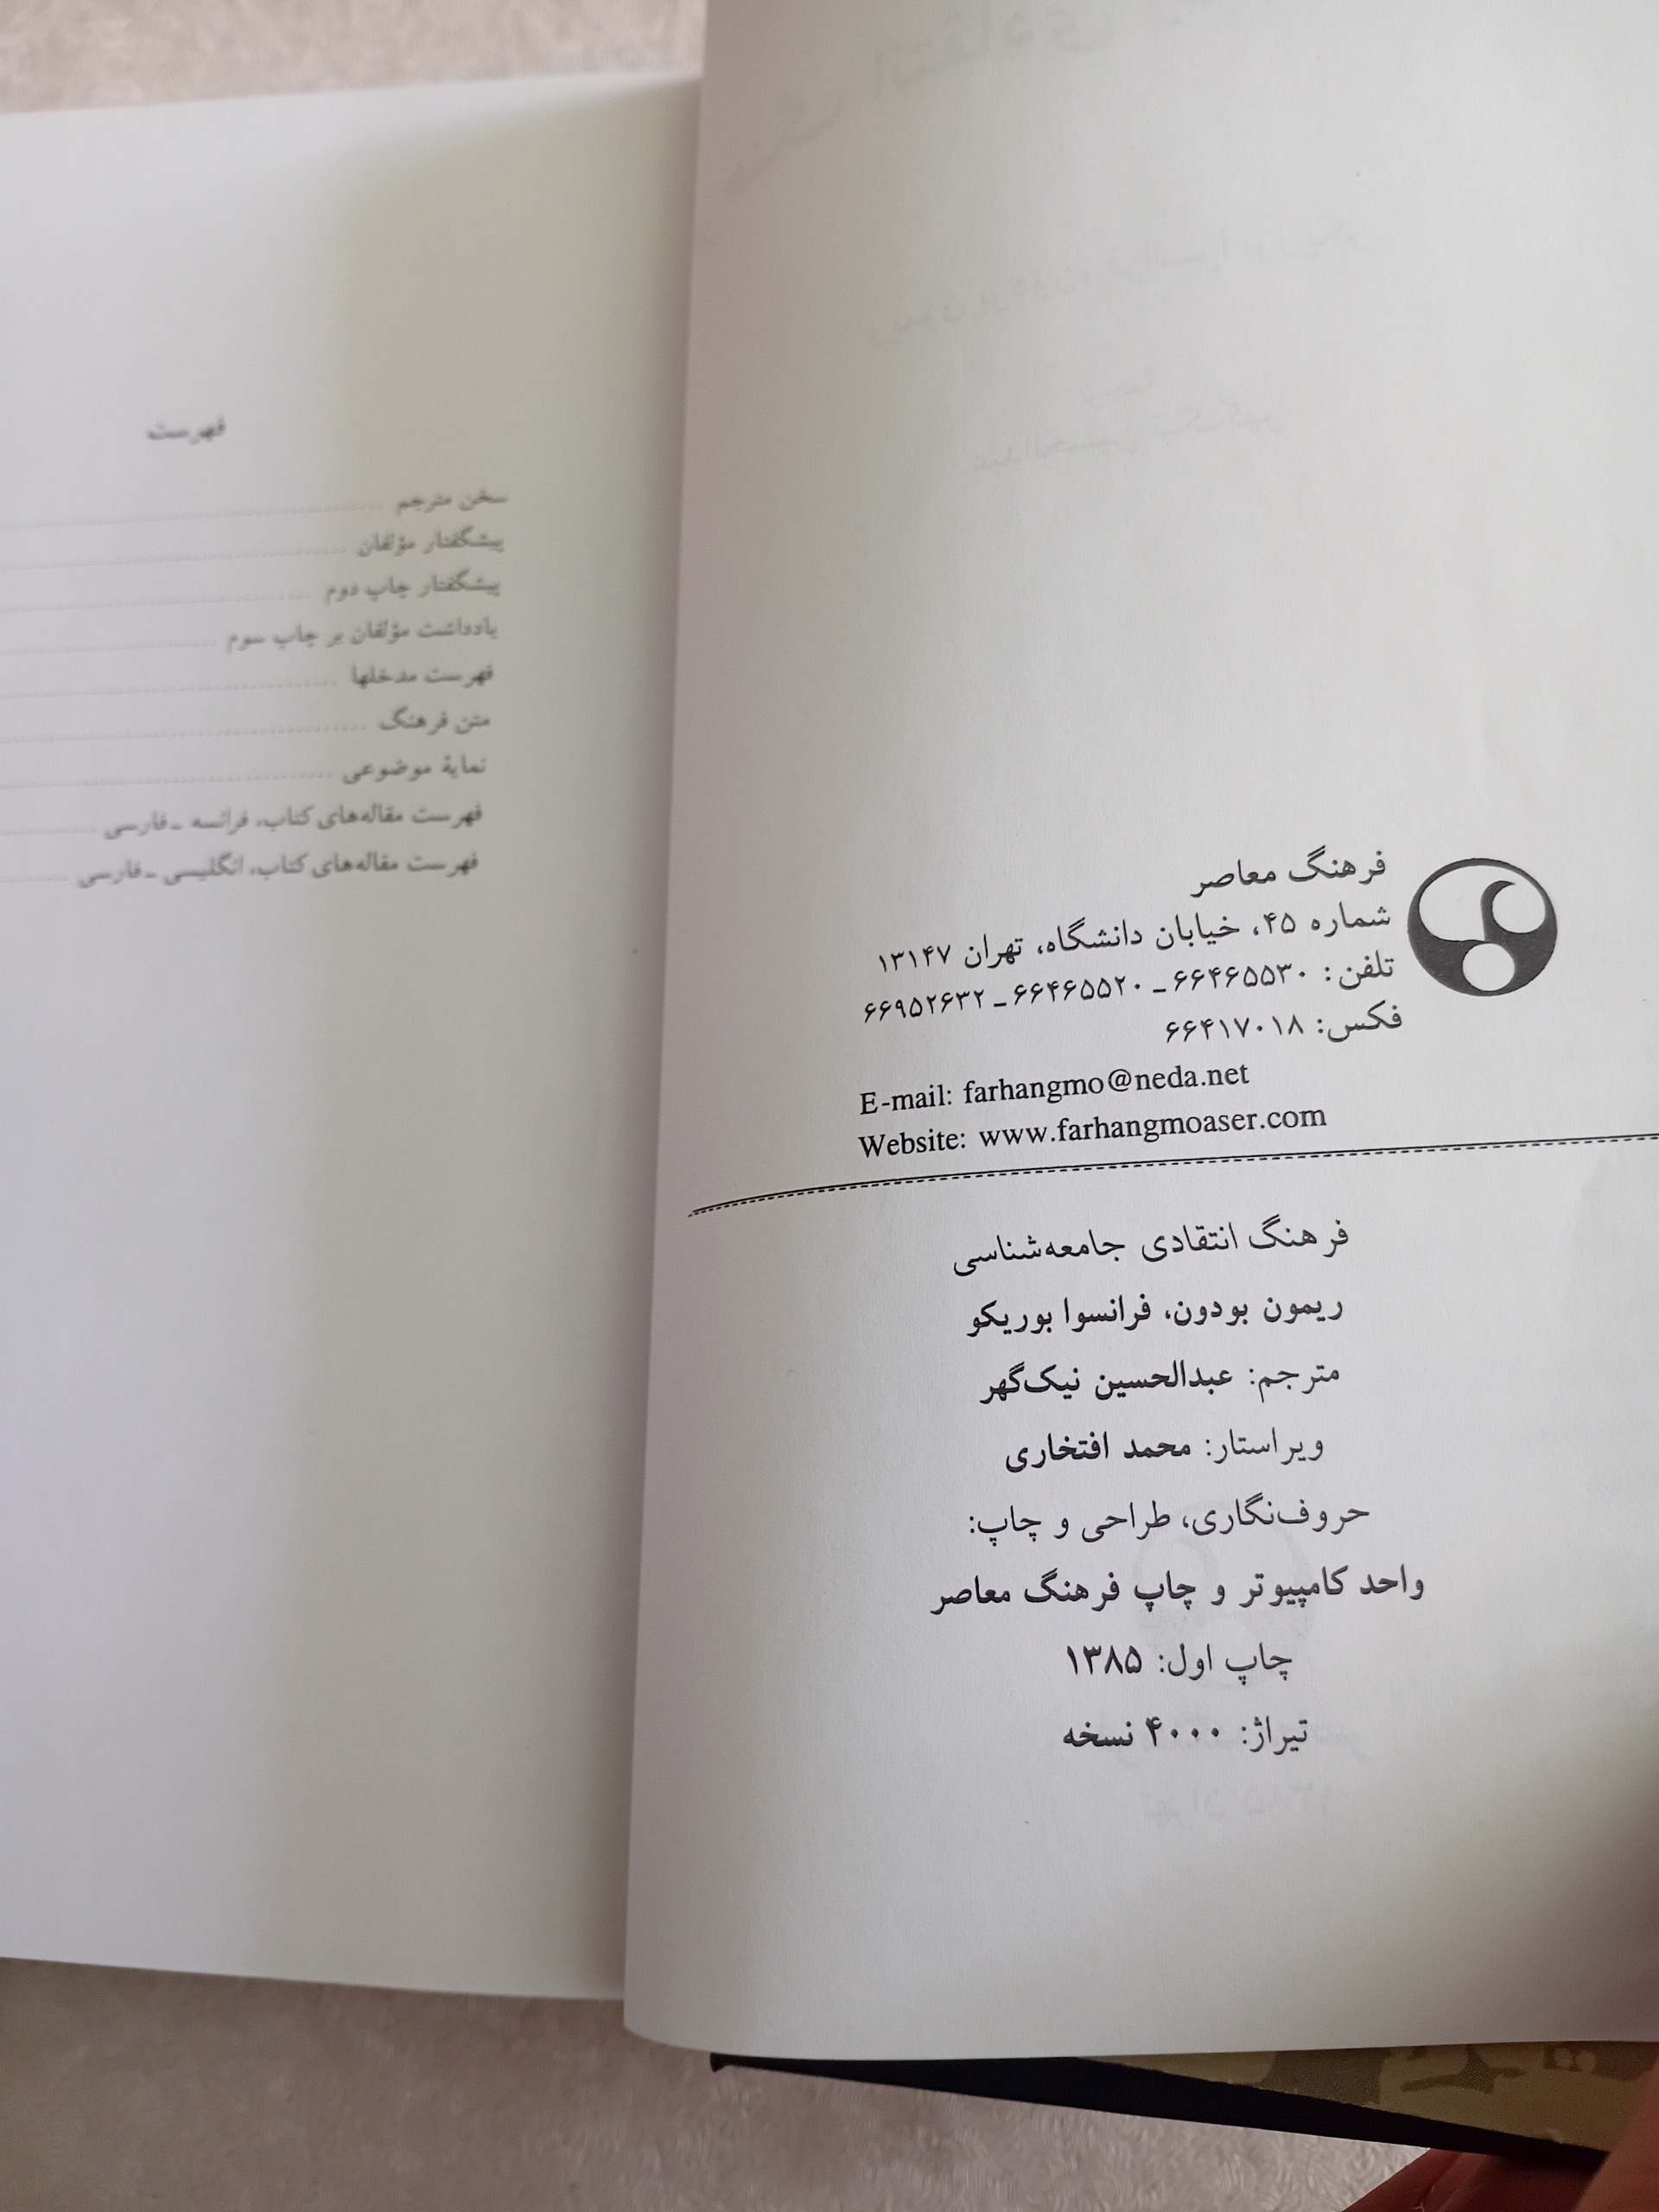 فرهنگ معاصر
شماره ۴۵، خیابان دانشگاه، تهران ۱۳۱۴۷
تلفن: ۶۶۴۶۵۵۳۰ ـ ۶۶۴۶۵۵۲۰ ـ ۶۶۹۵۲۶۳۲
فکس: ۶۶۴۱۷۰۱۸
E-mail: farhangmo@neda.net
Website: www.farhangmoaser.com
فرهنگ انتقادی جامعه‌شناسی
ریمون بودون، فرانسوا بوریکو
مترجم: عبدالحسین نیک‌گهر
ویراستار: محمد افتخاری
حروف‌نگاری، طراحی و چاپ:
واحد کامپیوتر و چاپ فرهنگ معاصر
چاپ اول: ۱۳۸۵
تیراژ: ۴۰۰۰ نسخه
فهرست
سخن مترجم
پیشگفتار مؤلفان
پیشگفتار چاپ دوم
یادداشت مؤلفان بر چاپ سوم
فهرست مدخلها
متن فرهنگ
نمایهٔ موضوعی
فهرست مقاله‌های کتاب، فرانسه ـ فارسی
فهرست مقاله‌های کتاب، انگلیسی ـ فارسی